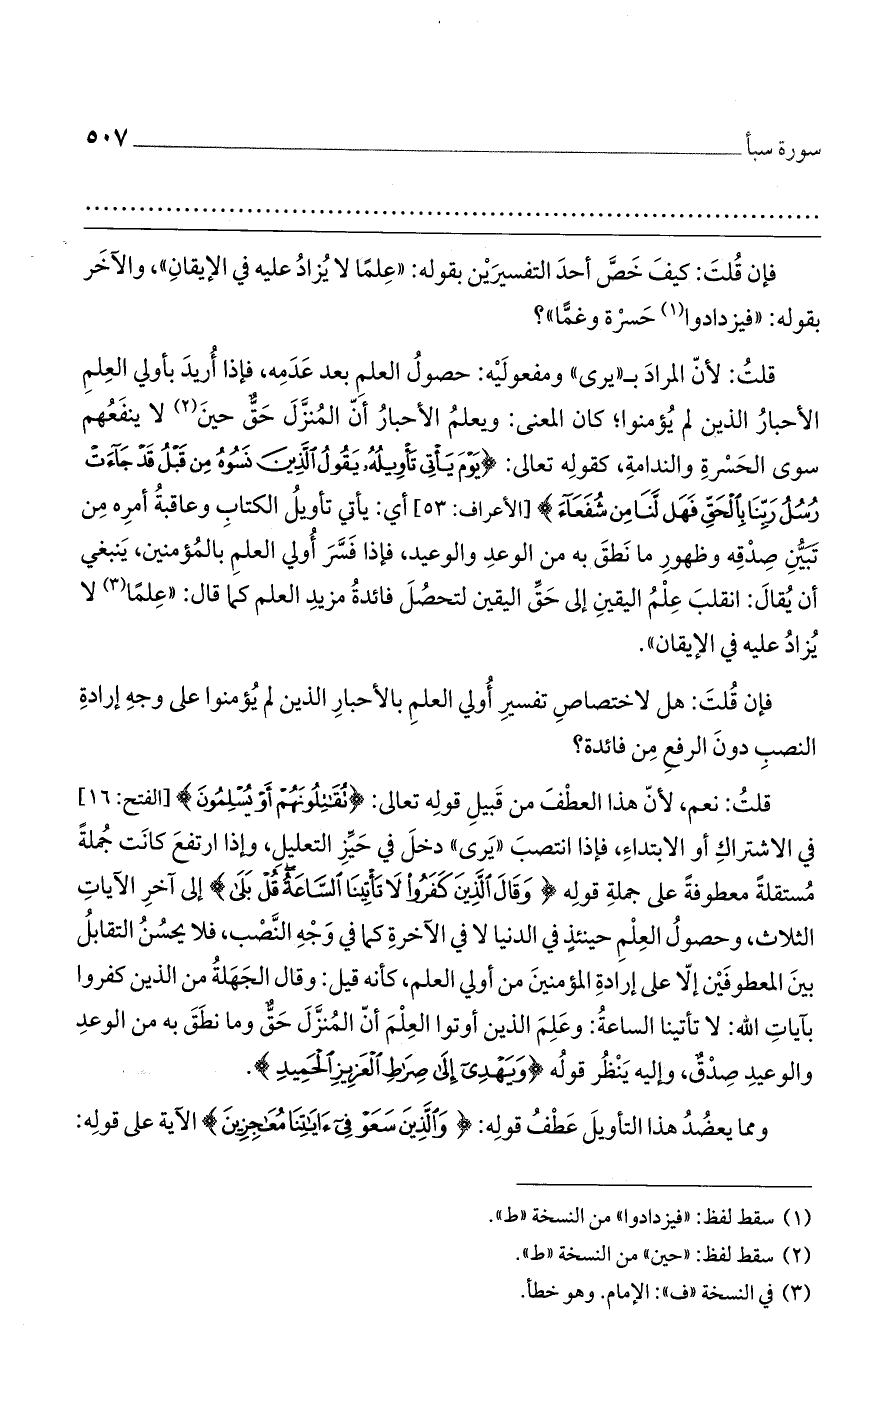 سورة سبأ ٥٠٧
فإن قُلتَ: كيفَ خَصَّ أحدَ التفسيرَيْن بقوله: «عِلمًا لا يُزادُ عليه في الإيقانِ»، والآخَر
بقوله: «فيزدادوا(١) حَسرْة وغمًّا»؟
قلتُ: لأنّ المرادَ بـ«يرى» ومفعولَيْه: حصولُ العلمِ بعد عَدَمِه، فإذا أُريدَ بأولي العِلمِ
الأحبارُ الذين لم يُؤمنوا؛ كان المعنى: ويعلمُ الأحبارُ أنّ المُنزَّلَ حَقٌّ حينَ(٢) لا ينفَعُهم
سوى الحَسْرةِ والندامةِ، كقولِه تعالى: ﴿يَوْمَ يَأْتِي تَأْوِيلُهُۥ يَقُولُ ٱلَّذِينَ نَسُوهُ مِن قَبْلُ قَدْ جَآءَتْ
رُسُلُ رَبِّنَا بِٱلْحَقِّ فَهَل لَّنَا مِن شُفَعَآءَ﴾ [الأعراف: ٥٣] أي: يأتي تأويلُ الكتابِ وعاقبةُ أمرِه مِن
تَبَيُّنِ صِدْقِه وظهورِ ما نَطقَ به من الوعدِ والوعيد، فإذا فَسَّرَ أُولي العلمِ بالمُؤمنين، يَنبغي
أن يُقالَ: انقلبَ عِلْمُ اليقينِ إلى حَقِّ اليقين لتحصُلَ فائدةُ مزيدِ العلم كما قال: «عِلمًا(٣) لا
يُزادُ عليه في الإيقان».
فإن قُلتَ: هل لاختصاصِ تفسيرِ أُولي العلمِ بالأحبارِ الذين لم يُؤمنوا على وجهِ إرادةِ
النصبِ دونَ الرفعِ مِن فائدة؟
قلتُ: نعم، لأنّ هذا العطْفَ من قَبيلِ قولِه تعالى: ﴿تُقَٰتِلُونَهُمْ أَوْ يُسْلِمُونَ﴾ [الفتح: ١٦]
في الاشتراكِ أو الابتداءِ، فإذا انتصبَ «يَرى» دخلَ في حَيِّزِ التعليلِ، وإذا ارتفعَ كانَت جُملةً
مُستقلةً معطوفةً على جملةِ قوله ﴿وَقَالَ ٱلَّذِينَ كَفَرُوا۟ لَا تَأْتِينَا ٱلسَّاعَةُ ۖ قُلْ بَلَىٰ﴾ إلى آخرِ الآياتِ
الثلاث، وحصولُ العِلْمِ حينئذٍ في الدنيا لا في الآخرةِ كما في وَجْهِ النَّصْب، فلا يحسُنُ التقابلُ
بينَ المعطوفَيْن إلّا على إرادةِ المؤمنينَ من أولي العلم، كأنه قيل: وقال الجَهَلةُ من الذين كفروا
بآياتِ الله: لا تأتينا الساعةُ: وعَلِمَ الذين أوتوا العِلْمَ أنّ المُنزَّلَ حَقٌّ وما نطَقَ به من الوعدِ
والوعيدِ صِدْقٌ، وإليه يَنْظُر قولُه ﴿وَيَهْدِىٓ إِلَىٰ صِرَٰطِ ٱلْعَزِيزِ ٱلْحَمِيدِ﴾.
ومما يعضُدُ هذا التأويلَ عَطْفُ قولِه: ﴿وَٱلَّذِينَ سَعَوْ فِىٓ ءَايَٰتِنَا مُعَٰجِزِينَ﴾ الآية على قولِه:
(١) سقط لفظ: «فيزدادوا» من النسخة «ط».
(٢) سقط لفظ: «حين» من النسخة «ط».
(٣) في النسخة «ف»: الإمام. وهو خطأ.